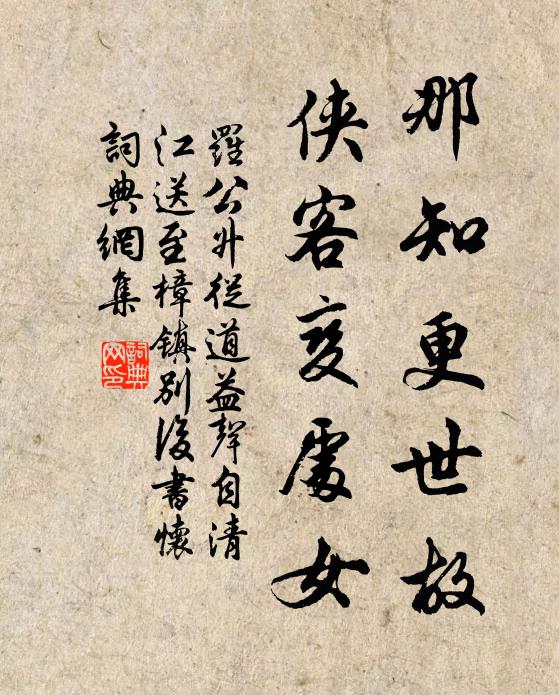 那知更世故
俠客变處女
羅公升從道益聲自清
江送至樟鎮別後書懷
詞典網集
詞典網印